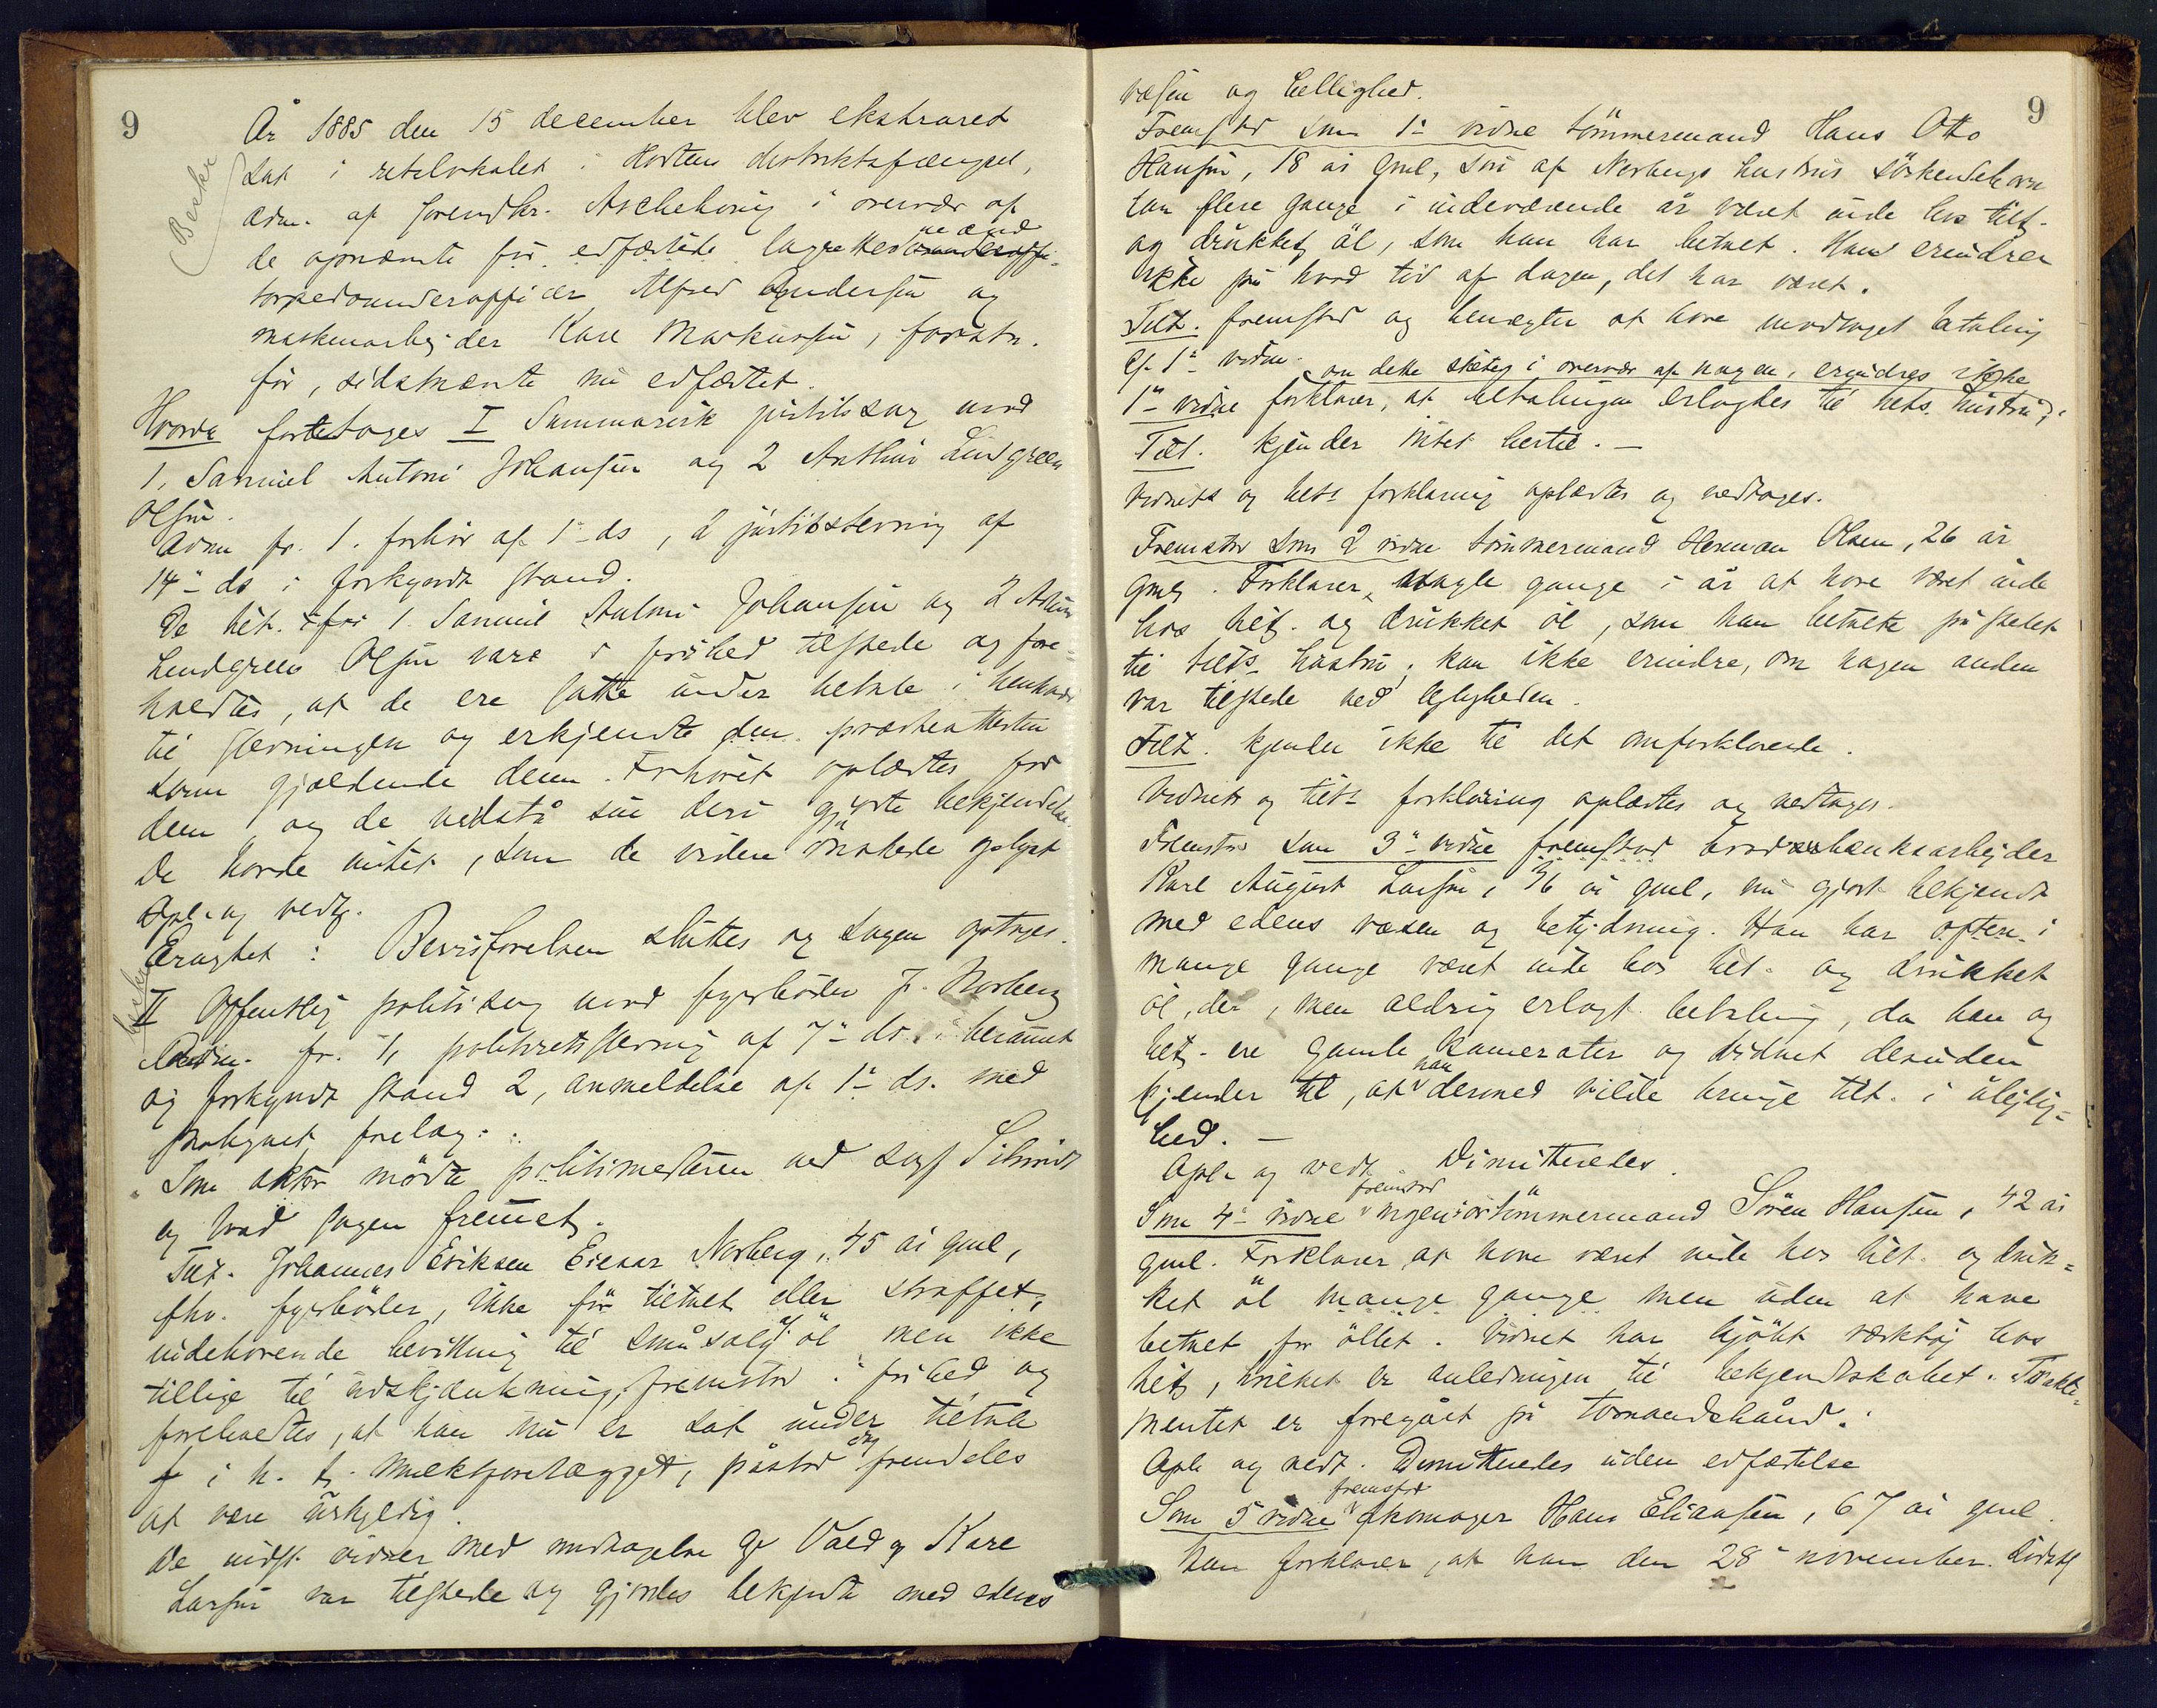 9
År 1885 den 15 december blev ekstraret
sat i retslokalet i Hortens distriktsfængsel,
adm. af forendhr. Aschehoug i overvær af
de opnæmte før edfæstede lagrettesmænd
torpedounderofficer Alfred Andersen og
maskinarbejder Karl Markussen, forestr.
før, sidstnævnte nu edfæstet.
Hvorda foretoges I Summarisk justitssag mod
1, Samuel Antoni Johansen og 2 Arthur Lindgreen
Olsen.
Adm fr. 1. forhør af 1ste ds, 2 justitsstevning af
14de ds i forkyndt stand.
De tilt. 1 Samuel Antoni Johansen og 2 Arthur
Lindgreen Olsen vare i frihed tilstede og fore-
holdtes, at de ere satte under tiltale i henhold
til stevningen og erkjendte den præsteattesten
som gjældende dem. Forhøret oplæstes for
dem og de vedstå sin deri gjorte bekjendelse.
De havde intet, som de videre ønskede oplyst
Opl. og vedt.
Eragtet: Bevisførelsen sluttes og sagen optages.
II Offentlig politisag mod fyrbøder J. Norberg
Adm. fr. 1, politiretsstevning af 7de ds. i berammet
og forkyndt stand 2, anmeldelse af 1ste ds. med
påtegnet forelæg.
Som aktor mødte politimesteren ved
og bad sagen fremmet.
Tilt. Johannes Eriksen Norberg, 45 år gml,
fhv. fyrbøder, ikke før tiltalt eller straffet,
indehavende bevilling til småsalg af öl men ikke
tillige til udskjænkning, fremstod i frihed og
foreholdtes, at han nu er sat under tiltale
i h. t. mulktforelægget, påstod dog fremdeles
at være uskyldig.
De indst. vidner med undtagelse af Vald og Karl
Larsen var tilstede og gjordes bekjendt med edens
9
væsen og hellighed.
Fremstod som 1ste vidne tömmermand Hans Otto
Hansen, 18 år gml, søn af Norbergs hustrus söskendebarn
han flere gange i indeværende år været inde hos tilt.
og drukket öl, som han har betalt. Han erindrer
ikke på hvad tid af dagen, det har været.
Tilt. fremstod og benægter at have modtaget betaling
af 1ste vidne.
1ste vidne forklarer, at betalingen erlagdes til tilts. hustru; om dette skete i overvær af nogen, erindres ikke
Tilt. kjender intet hertil. —
Vidnets og tilts forklaring oplæstes og vedtoges.
Fremstod som 2 vidne tömmermand Herman Olsen, 26 år
gml. Forklarer, nogle gange i år at have været inde
hos tilt. og drukket öl, som han betalte på stedet
til tilts hustru; kan ikke erindre, om nogen anden
var tilstede ved lejligheden.
Tilt. kjender ikke til det omforklarede.
Vidnets og tilts forklaring oplæstes og vedtoges.
Fremstod som 3de vidne fremstod
Karl August Larsen, 36 år gml, nu gjort bekjendt
med edens væsen og betydning. Han har
mange gange været inde hos tilt. og drukket
öl, der, men aldrig erlagt betaling, da han og
tilt. ere gamle kamerater og vidnet desuden
kjender til, at han dermed vilde bringe tilt. i ulejlig-
hed. —
Opl. og vedt. Dimitteredes.
Som 4de vidne fremstod ingeniørtömmermand Sören Hansen, 42 år
gml. Forklarer at have været inde hos tilt. og druk-
ket öl mange gange men uden at have
betalt for öllet. Vidnet har kjöbt værktöj hos
tilt, hvilket er anledningen til bekjendtskabet. Trakte-
mentet er foregået på tomandshånd.
Opl. og vedt. Dimitteredes uden edfæstelse
Som 5 vidne fremstod skomager Hans Eliassen, 67 år gml.
Han forklarer, at han den 28de november sidstl